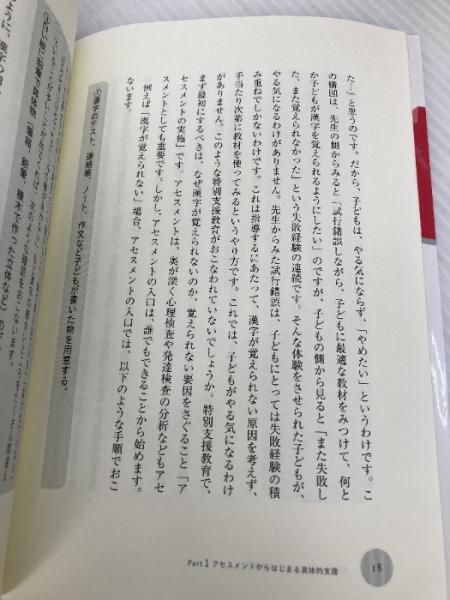 た…」と思うのです。だから、子どもは、やる気にならず、「やめたい」というわけです。こ
の構図は、先生の側からみると「試行錯誤しながら、子どもに最適な教材をみつけて、何と
か子どもが漢字を覚えられるようにしたい」のですが、子どもの側から見ると「また失敗し
た、また覚えられなかった」という失敗経験の連続です。そんな体験をさせられた子どもが、
やる気になるわけがありません。先生からみた試行錯誤は、子どもにとっては失敗経験の積
み重ねでしかないわけです。これは指導するにあたって、漢字が覚えられない原因を考えず、
手当たり次第に教材を使ってみるというやり方です。これでは、子どもがやる気になるわけ
がありません。このような特別支援教育がおこなわれていないでしょうか。特別支援教育で、
まず最初にするべきは、なぜ漢字が覚えられないのか、覚えられない要因をさぐること「ア
セスメントの実施」です。アセスメントは、奥が深く心理検査や発達検査の分析などもアセ
スメントとしても重要です。しかし、アセスメントの入口は、誰でもできることから始めます。
例えば「漢字が覚えられない」場合、アセスメントの入口では、以下のような手順でおこ
ないます。
①漢字のテスト、連絡帳、ノート、作文など子どもが書いた物を用意する。
Part 1 アセスメントからはじまる具体的支援
18